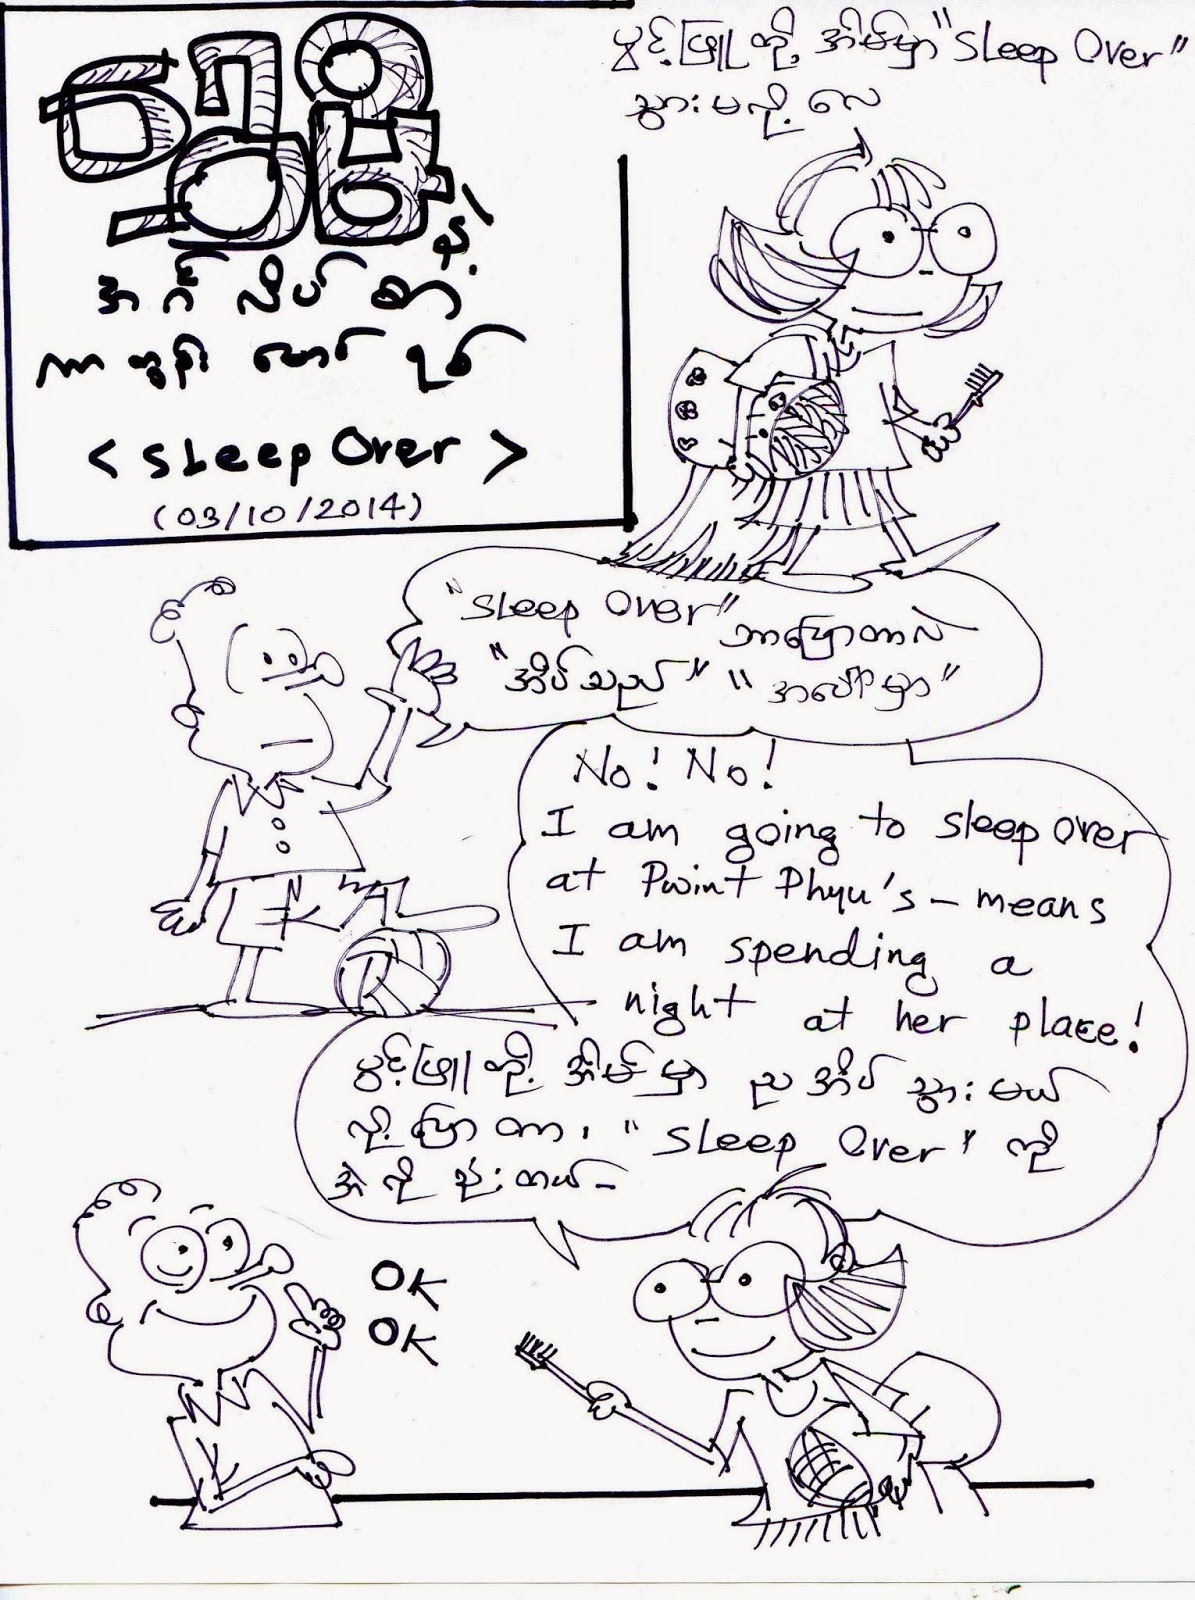 နဲ့
အင်္ဂလိပ်စာ
ကာတွန်း
< sleep over >
(03/10/2014)
ပွင့်ဖြူတို့ အိမ်မှာ "sleep over"
သွားမလို့ လေ
"sleep over" ဘာပြောတာလဲ
"အိပ်သည်" "အပေါ်မှာ"
No! No!
I am going to sleep over
at Pwint Phyu's - means
I am spending a
night at her place!
ပွင့်ဖြူတို့ အိမ်မှာ ည အိပ် သွားမယ်
လို့ ပြောတာ၊ "sleep over" ကို
အဲလို သုံးတယ် -
OK
OK